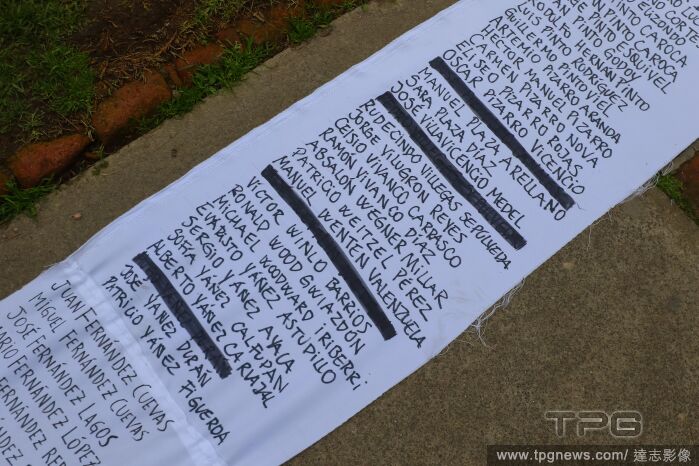 PINTO CAROCA
PINTO CAROCA
PINTO ESQUIVEL
PINTO GODOY
HERNÁN PINTO
LUIS PINTO RODRÍGUEZ
GUILLERMO PINTO VIEL
ARTEMIO PIZARRO ARANDA
MANUEL PIZARRO
CARMEN PIZARRO NOVA
ELISEO PIZARRO ROJAS
OSCAR PIZARRO VICENCIO
MANUEL PLAZA ARELLANO
SARA PLAZA DÍAZ
JOSÉ VILLAVICENCIO MEDEL
RUDECINDO VILLEGAS SEPÚLVEDA
JORGE VILUGRÓN REYES
CELSO VIVANCO CARRASCO
RAMÓN VIVANCO DÍAZ
ABSALÓN WEGNER MILLAR
PATRICIO WEITZEL PÉREZ
MANUEL WENTEN VALENZUELA
VÍCTOR WINLO BARRIOS
RONALD WOOD GWIAZDON
MICHAEL WOODWARD IRIBERRI
EVARISTO YÁÑEZ ASTUDILLO
SERGIO YÁÑEZ AYALA
SOFÍA YÁÑEZ CALFUPÁN
ALBERTO YÁÑEZ CARVAJAL
JOSÉ YÁÑEZ DURÁN
PATRICIO YÁÑEZ FIGUEROA
JUAN FERNÁNDEZ CUEVAS
MIGUEL FERNÁNDEZ CUEVAS
JOSÉ FERNÁNDEZ LAGOS
FERNÁNDEZ LÓPEZ
FERNÁNDEZ
TPG
www.tpgnews.com/達志影像